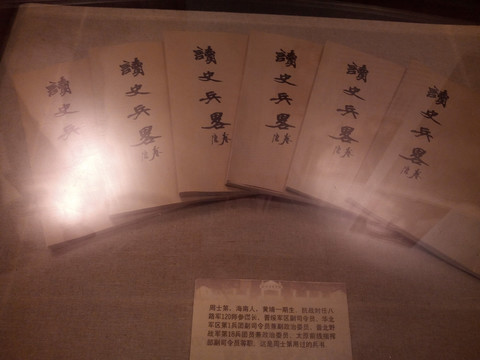 讀史兵
讀史兵畧
讀史兵畧
讀史兵畧
讀史兵畧
讀史兵畧
周士第，海南人，黄埔一期生，抗战时任八
路军120师参谋长、晋绥军区副司令员、华北
军区第1兵团副司令员兼副政治委员、
战军第18兵团员兼政治委员、太原前线指挥
部副司令员等职。这是周士第用过的兵书